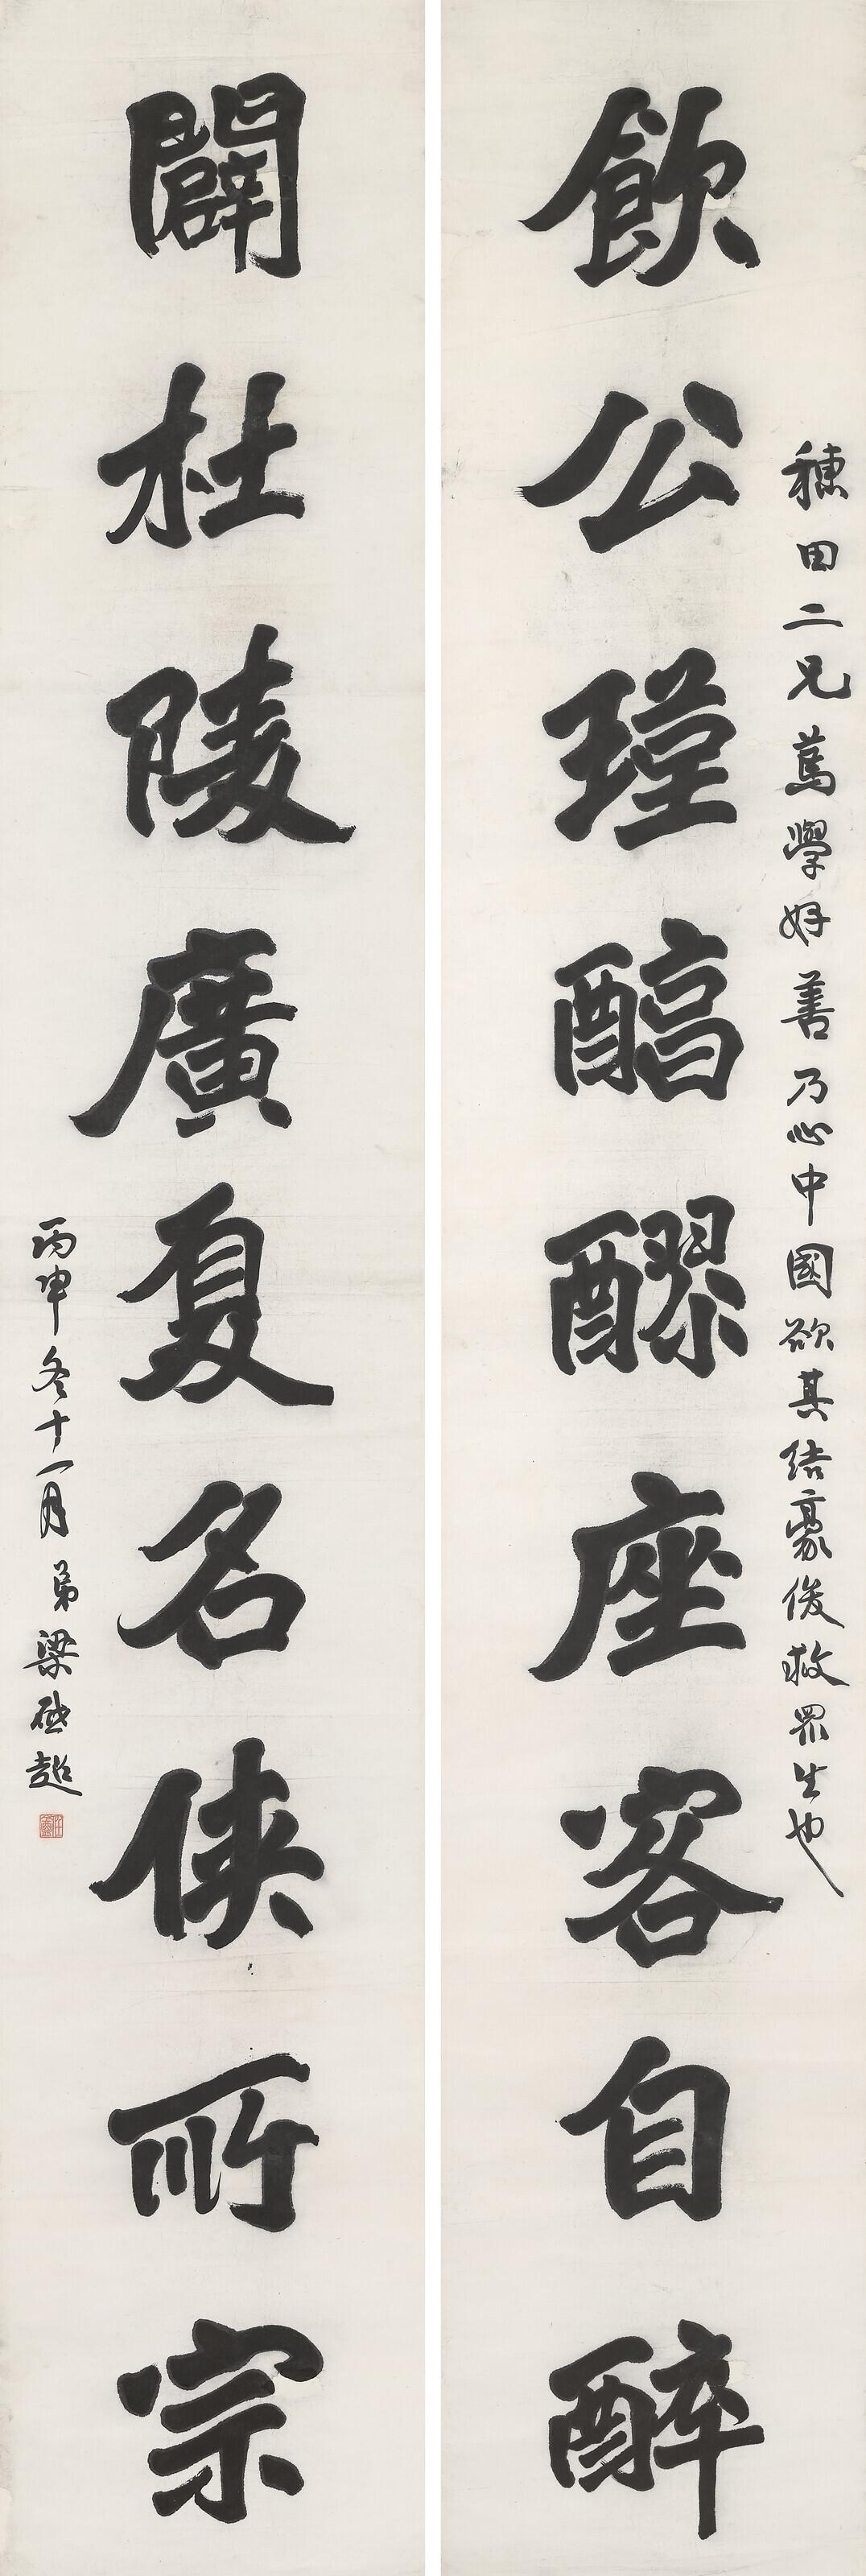 穗田二兄篤學好善乃心中國欲其結豪俊救眾生也
飲公瑾醕醪座客自醉
闢杜陵廣夏名俠所宗
丙申冬十一月弟梁啟超